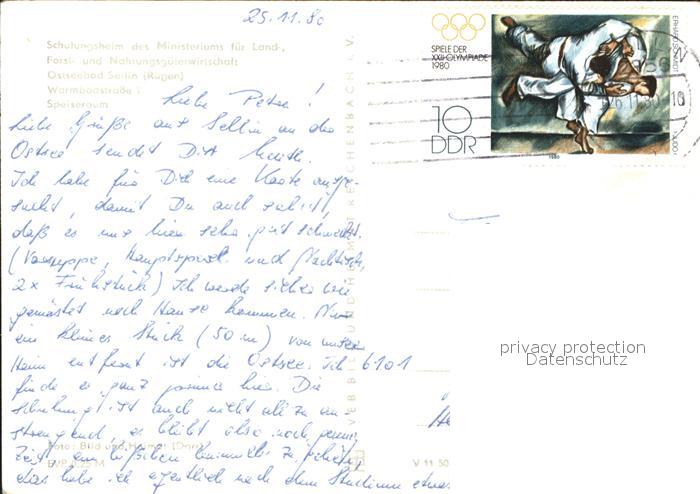 25.11.80
Schulungsheim des Ministeriums für Land-,
Forst- und Nahrungsgüterwirtschaft
Ostseebad Sellin (Rügen)
Warmbadstraße 1
Speiseraum
Liebe Petra!
liebe Grüße aus Sellin an der
Ostsee sendet Dir
Ich habe für Dich eine Karte ausge-
sucht, damit Du auch siehst,
daß es uns hier sehr gut schmeckt.
(Vorsuppe, Hauptspeise und Nachtisch,
2x Frühstück) Ich werde sicher wie
gemästet nach Hause kommen. Nur
ein kleines Stück (50 m) von unserem
Heim entfernt ist die Ostsee. Ich
finde es ganz prima hier. Die
Schulung ist auch nicht allzu an-
strengend, es bleibt also noch genug
Zeit, ein bißchen
das habe ich eigentlich nach dem Studium etwas
Foto: Bild und Heimat
EVP 0,25 M
V 11 50
6101
SPIELE DER
XXII.OLYMPIADE
1980
10
DDR
ERHARD SCHMIDT
1980
26.11.80
privacy protection
Datenschutz